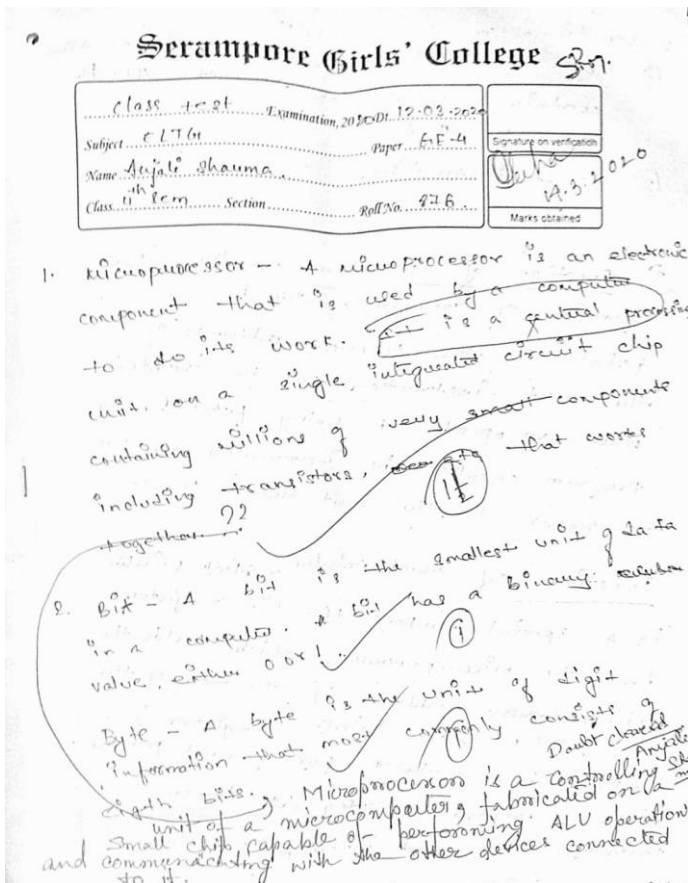 Serampore Girls' College
Class test Examination, 2020 Dt. 12-03-2020
Subject ELTG Paper GE-4
Name Anjali Sharma.
Class 4th Sem Section Roll No. 876.
Signature on verification
14.3.2020
Marks obtained
1. Microprocessor - A microprocessor is an electronic
component that is used by a computer
to do its work. It is a central processing
unit on a single integrated circuit chip
containing millions of very small components
including transistors, that works
together. ??
1½
2. Bit - A bit is the smallest unit of data
in a computer. A bit has a binary
value, either 0 or 1.
1
Byte - A byte is the unit of digit
information that most commonly consists of
eigth bits.
1
Doubt cleared
Anjali
Microprocessor is a controlling
unit of a microcomputer, fabricated on a
small chip capable of performing ALU operations
and communicating with the other devices connected
to it.